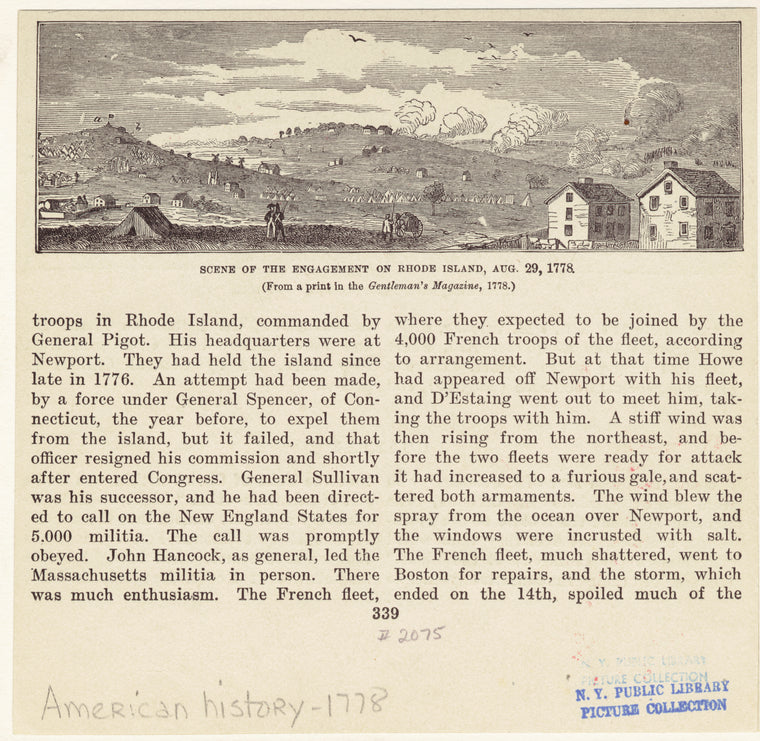 a
SCENE OF THE ENGAGEMENT ON RHODE ISLAND, AUG. 29, 1778.
(From a print in the Gentleman's Magazine, 1778.)
troops in Rhode Island, commanded by
General Pigot. His headquarters were at
Newport. They had held the island since
late in 1776. An attempt had been made,
by a force under General Spencer, of Con-
necticut, the year before, to expel them
from the island, but it failed, and that
officer resigned his commission and shortly
after entered Congress. General Sullivan
was his successor, and he had been direct-
ed to call on the New England States for
5.000 militia. The call was promptly
obeyed. John Hancock, as general, led the
Massachusetts militia in person. There
was much enthusiasm. The French fleet,
where they expected to be joined by the
4,000 French troops of the fleet, according
to arrangement. But at that time Howe
had appeared off Newport with his fleet,
and D'Estaing went out to meet him, tak-
ing the troops with him. A stiff wind was
then rising from the northeast, and be-
fore the two fleets were ready for attack
it had increased to a furious gale, and scat-
tered both armaments. The wind blew the
spray from the ocean over Newport, and
the windows were incrusted with salt.
The French fleet, much shattered, went to
Boston for repairs, and the storm, which
ended on the 14th, spoiled much of the
339
# 2075
American history - 1778
N. Y. PUBLIC LIBRARY
PICTURE COLLECTION
N. Y. PUBLIC LIBRARY
PICTURE COLLECTION